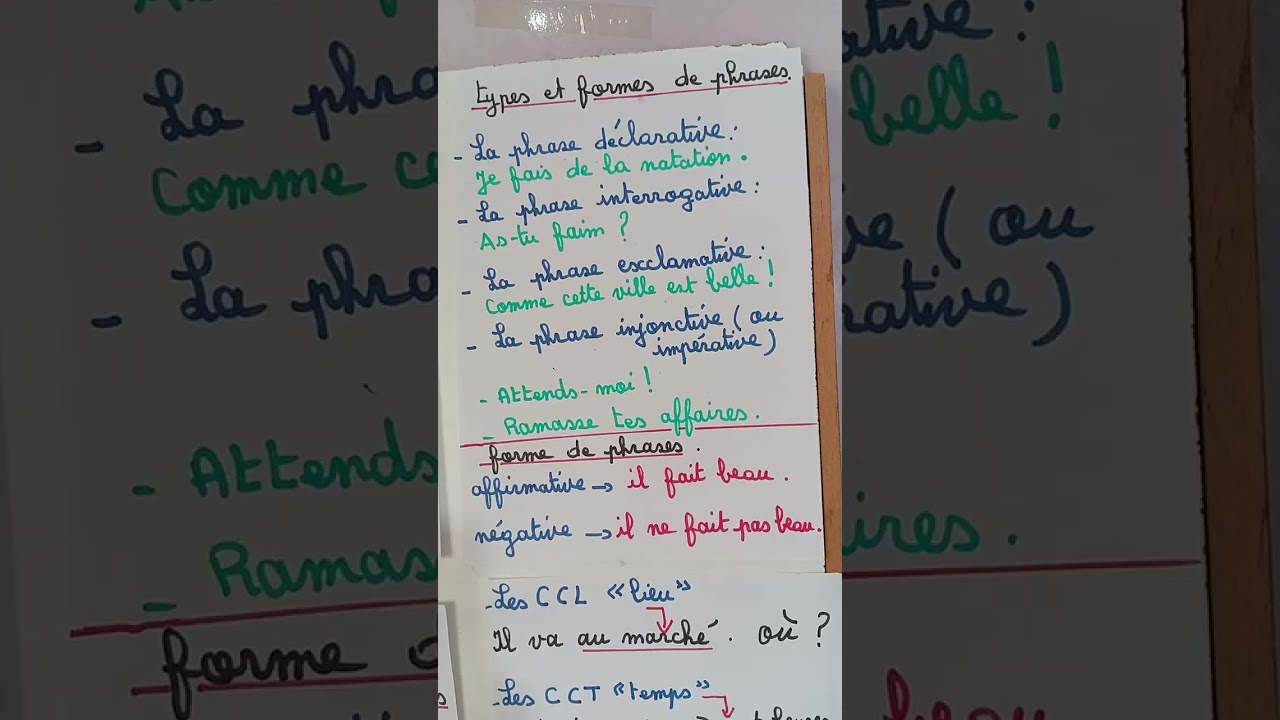 types et formes de phrases.
- La phrase déclarative :
Je fais de la natation.
- La phrase interrogative :
As-tu faim ?
- La phrase escclamative :
Comme cette ville est belle !
- La phrase injonctive (ou
impérative)
- Attends-moi !
- Ramasse tes affaires.
forme de phrases.
affirmative → il fait beau.
négative → il ne fait pas beau.
- Les CCL «lieu»
Il va au marché. où ?
- Les CCT «temps»